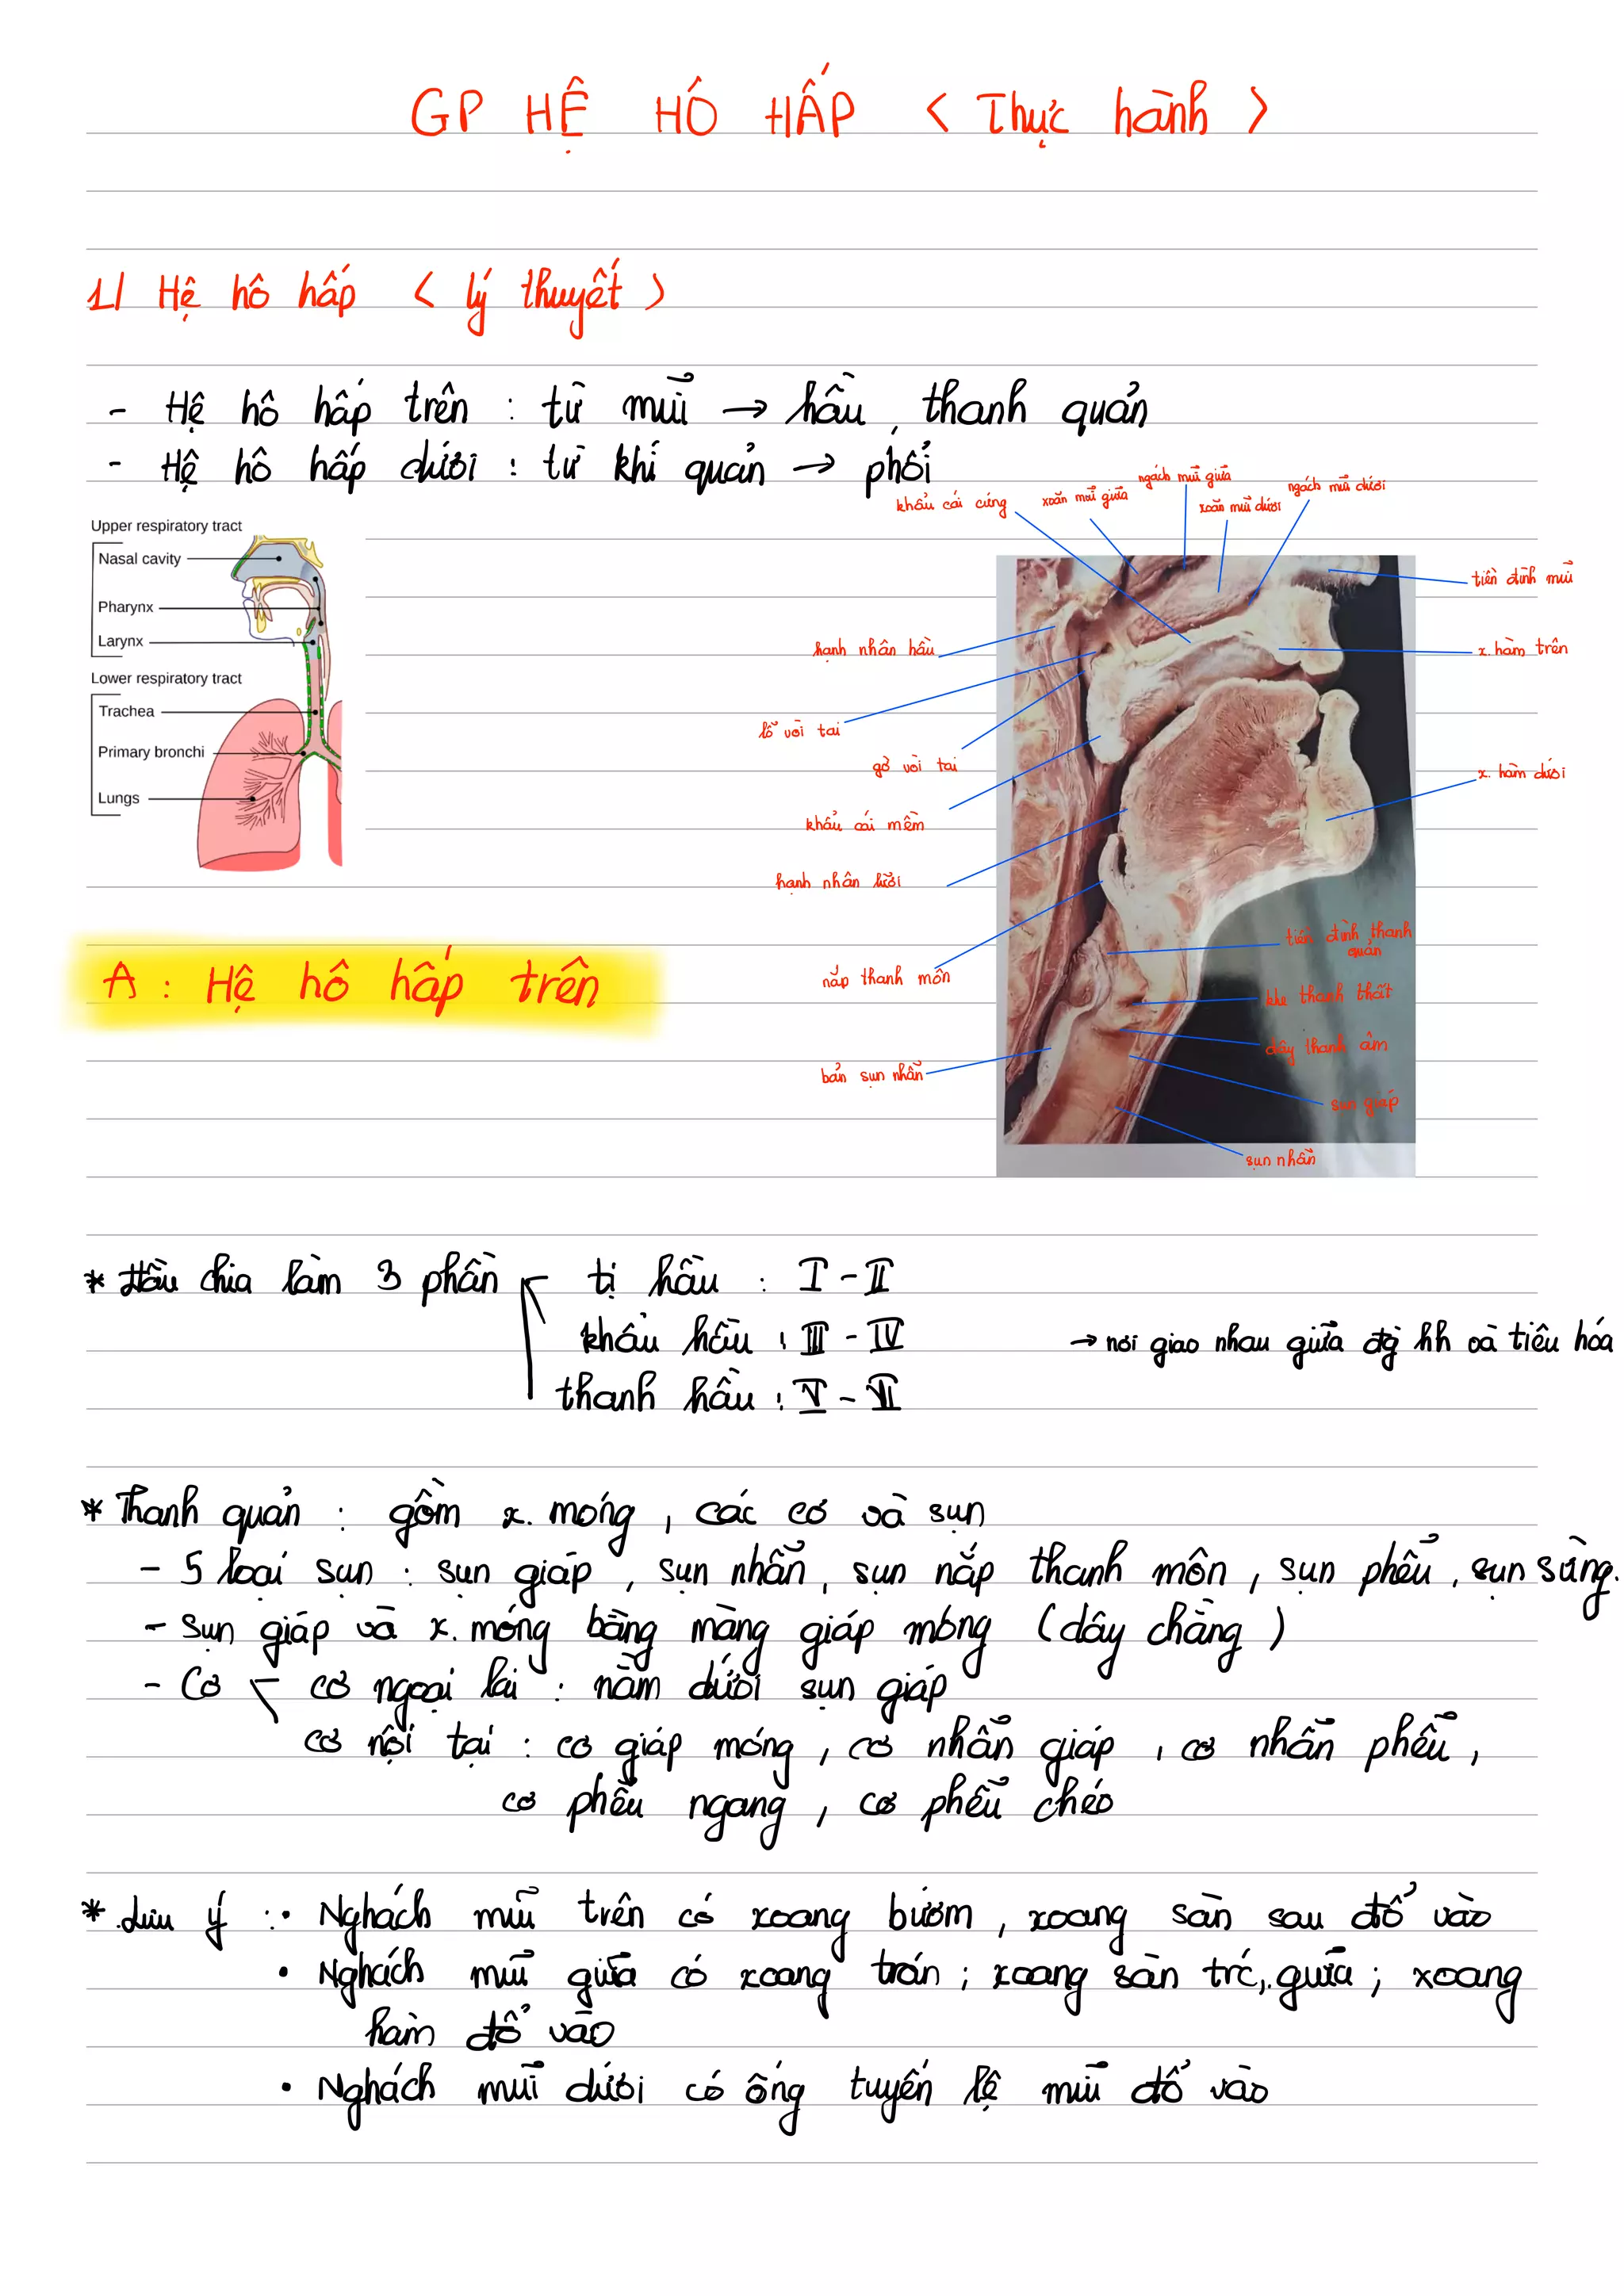 GP HỆ HÔ HẤP < Thực hành >
1/ Hệ hô hấp < lý thuyết >
- Hệ hô hấp trên : từ mũi → hầu, thanh quản
- Hệ hô hấp dưới : từ khí quản → phổi
Upper respiratory tract
Nasal cavity
Pharynx
Larynx
Lower respiratory tract
Trachea
Primary bronchi
Lungs
khẩu cái cứng
xoăn mũi giữa
ngách mũi giữa
xoăn mũi dưới
ngách mũi dưới
tiền đình mũi
hạnh nhân hầu
x. hàm trên
lỗ vòi tai
gờ vòi tai
x. hàm dưới
khẩu cái mềm
hạnh nhân lưỡi
tiền đình thanh quản
nắp thanh môn
khe thanh thất
dây thanh âm
bản sụn nhẫn
sụn giáp
sụn nhẫn
A : Hệ hô hấp trên
* Hầu chia làm 3 phần tị hầu : I - II
khẩu hầu : III - IV → nơi giao nhau giữa đg hh và tiêu hóa
thanh hầu : V - VI
* Thanh quản : gồm x. móng , các cơ và sụn
- 5 loại sụn : sụn giáp , sụn nhẫn , sụn nắp thanh môn , sụn phễu , sụn sừng.
- Sụn giáp và x. móng bằng màng giáp móng (dây chằng )
- Cơ cơ ngoại lai : nằm dưới sụn giáp
cơ nội tại : cơ giáp móng , cơ nhẫn giáp , cơ nhẫn phễu ,
cơ phễu ngang , cơ phễu chéo
* Lưu ý : • Nghách mũi trên có xoang bướm , xoang sàn sau đổ vào
• Nghách mũi giữa có xoang trán ; xoang sàn trc, giữa ; xoang
hàm đổ vào
• Nghách mũi dưới có ống tuyến lệ mũi đổ vào